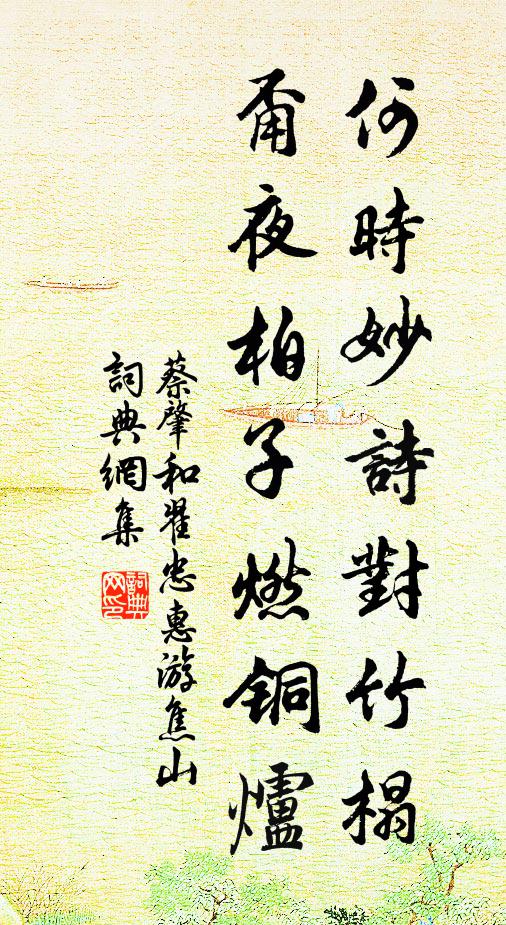 何時妙詩對竹榻
甭夜柏子燃銅爐
蔡肇和翟忠惠游焦山
詞典網集
詞典
网印